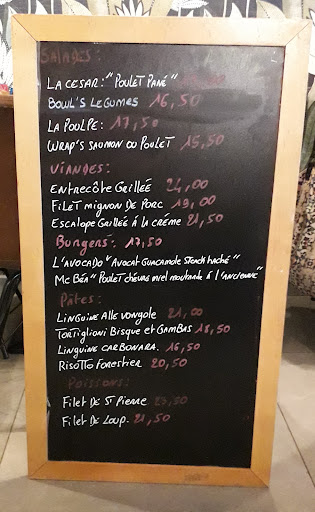 Salades:
La Cesar: "Poulet Pané"
Bowl's Legumes 16,50
La Poulpe: 17,50
Wrap's Saumon ou Poulet 15,50
Viandes:
Entrecôte Grillée 24,00
Filet mignon de Porc 19,00
Escalope Grillée à la crème 21,50
Burgers: 17,50
L'Avocado "Avocat Guacamole Steack haché"
Mc Béa "Poulet chèvre miel moutarde à l'ancienne"
Pâtes:
Linguine Alle Vongole 21,00
Tortiglioni Bisque et Gambas 18,50
Linguine Carbonara. 16,50
Risotto Forestier 20,50
Poissons:
Filet de St Pierre 23,50
Filet de Loup. 21,50